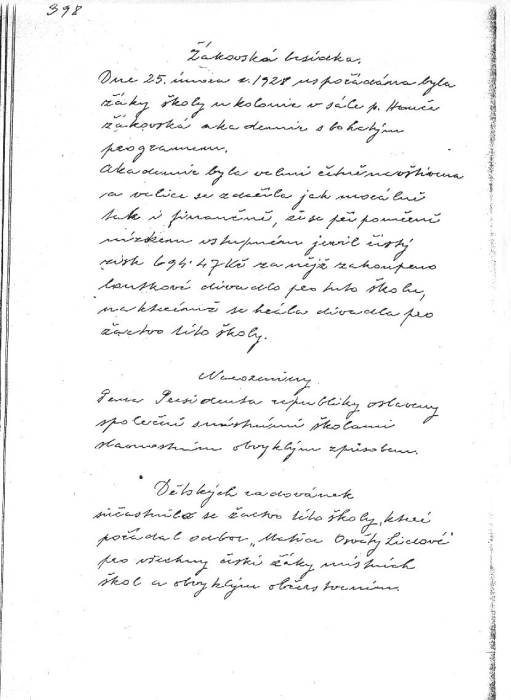 398
Žákovská besídka.
Dne 25. února r. 1928 uspořádána byla
žáky školy u kolonie v sále p. Hanče
žákovská akademie s bohatým
programem.
Akademie byla velmi četně navštívena
a velice se zdařila jak morálně
tak i finančně, že se při poměrně
nízkém vstupném jevil čistý
zisk 694·47 Kč za nějž zakoupeno
loutkové divadlo pro tuto školu,
na kterémž se hrála divadla pro
žactvo této školy.
Narozeniny
Pana Presidenta republiky oslaveny
společně s místními školami
slavnostním obvyklým způsobem.
Dětských radovánek
súčastnilo se žactvo této školy, které
pořádal odbor „Matice Osvěty Lidové"
pro všechny české žáky místních
škol a obvyklým občerstvením.